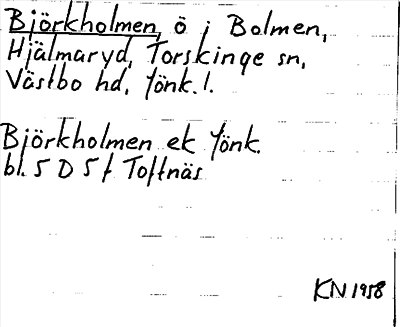 Björkholmen, ö i Bolmen,
Hjälmaryd, Torskinge sn,
Västbo hd, Jönk. l.
Björkholmen ek Jönk.
bl. 5 D 5 f Toftnäs
KN 1958